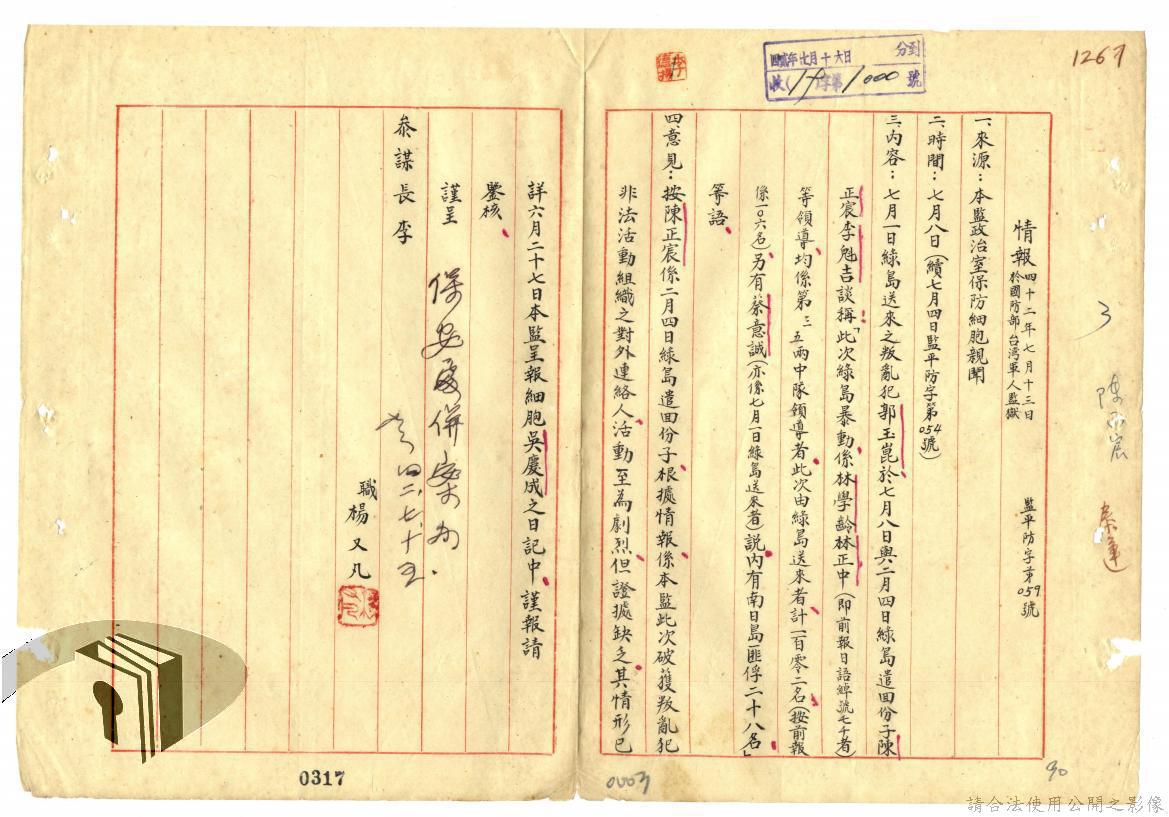 1267
四貳年七月十六日
分到
收 字第1000號
3 陳正宸
情報
四十二年七月十三日
於國防部台湾軍人監獄
監平防字第059號
一、來源：本監政治室保防細胞親聞
二、時間：七月八日（續七月四日監平防字第054號）
三、內容：七月一日綠島送來之叛亂犯郭玉崑於七月八日與二月四日綠島遣回份子陳
正宸李魁吉談稱「此次綠島暴動係林學齡林正中（即前報日語綽號七千者）
等領導均係第三五兩中隊領導者此次由綠島送來者計一百零二名（按前報
係一０六名）另有蔡意誠（亦係七月一日綠島送來者）説內有南日島匪俘二十八名」
等語
四意見：按陳正宸係二月四日綠島遣回份子根據情報係本監此次破獲叛亂犯
非法活動組織之對外連絡人活動至為劇烈但證據缺乏其情形已
詳六月二十七日本監呈報細胞吳慶成之日記中謹報請
鑒核
謹呈
參謀長李
保安處併案办
四二、七、十五.
職楊又凡
0317
0003
90
請合法使用公開之影像